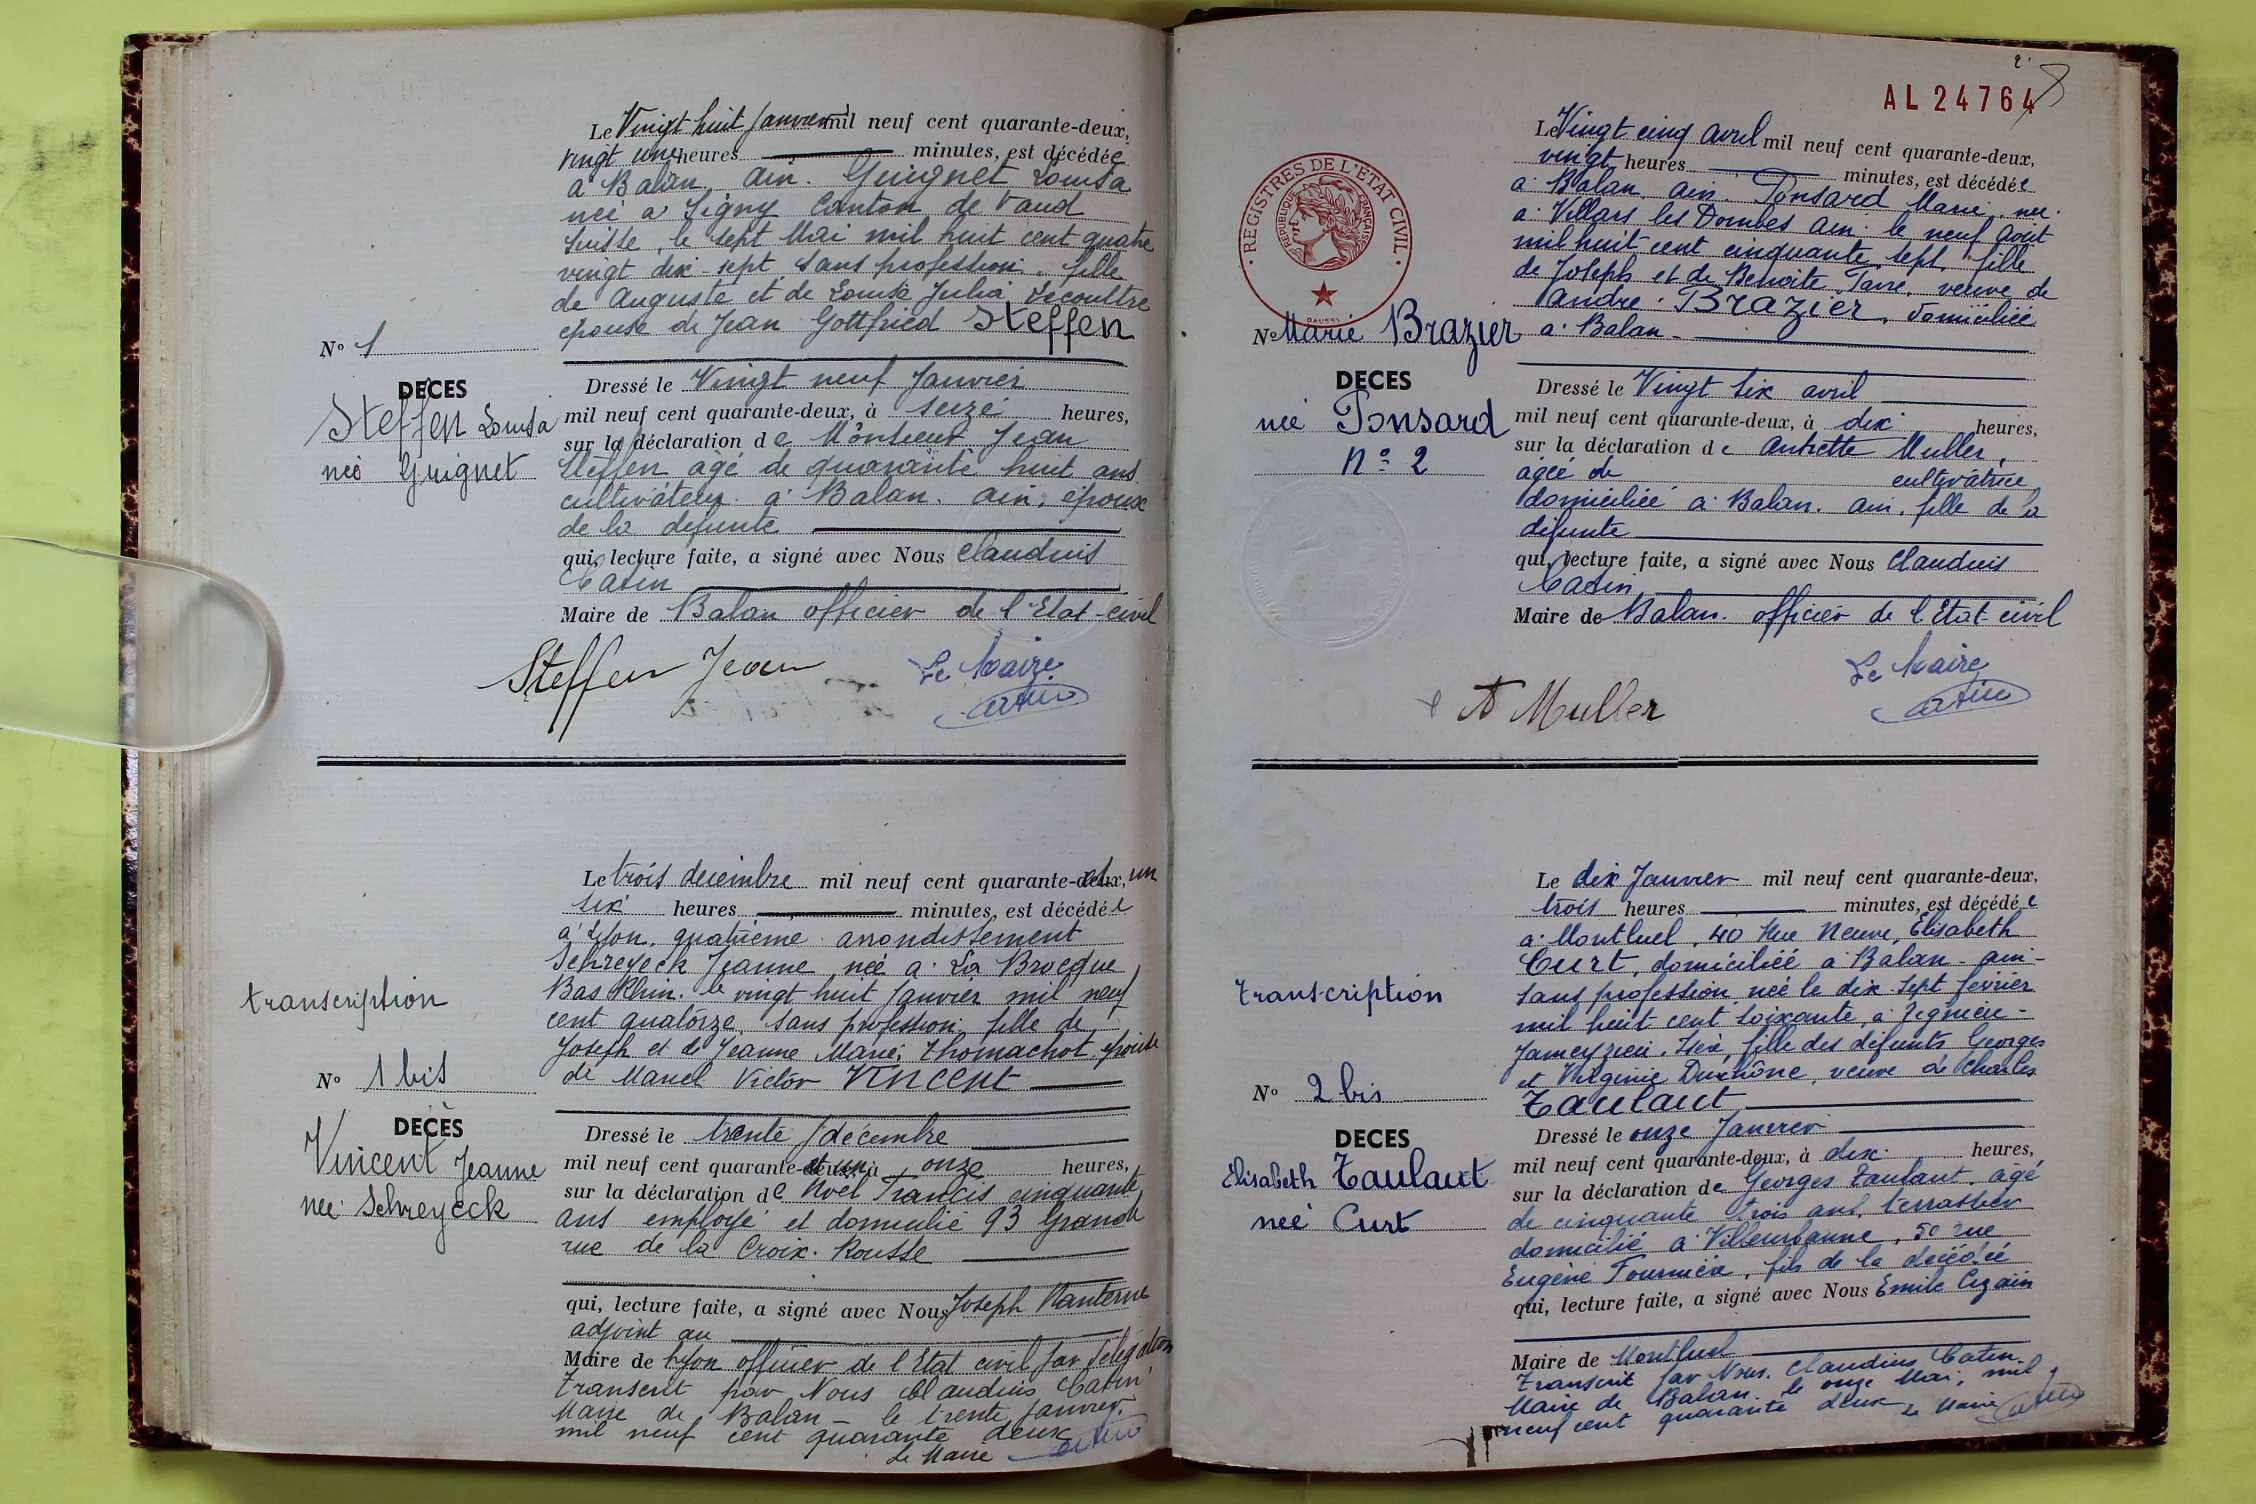 Le Vingt huit Janvier mil neuf cent quarante-deux,
vingt une heures minutes, est décédée
a Balan ain. Guignet Louisa
née a Signy Canton de Vaud
Suisse, le sept Mai mil huit cent quatre
vingt dix-sept, sans profession. fille
de Auguste et de Louise Julia Lecoultre
épouse de Jean Gottfried Steffen
N° 1
DECES
Steffen Louisa
née Guignet
Dressé le Vingt neuf Janvier
mil neuf cent quarante-deux, à seize heures,
sur la déclaration de Monsieur Jean
Steffen agé de quarante huit ans
cultivateur a Balan. ain, époux
de la defunte
qui, lecture faite, a signé avec Nous Claudius
Catin
Maire de Balan officier de l'Etat-civil
Steffen Jean
Le Maire
Catin
transcription
Le trois décembre mil neuf cent quarante-deux, et un
six heures minutes, est décédée
a Lyon, quatrième arrondissement
Schreyeck Jeanne née a La Brocque
Bas Rhin. le vingt huit Janvier mil neuf
cent quatorze, sans profession, fille de
Joseph et de Jeanne Marie, Thomachot épouse
de Marcel Victor Vincent
N° 1 bis
DECÈS
Vincent Jeanne
née Schreyeck
Dressé le trente décembre
mil neuf cent quarante-deux, à et un onze heures,
sur la déclaration de Noël Francis cinquante
ans employé et domicilié 93 Grande
rue de la Croix-Rousse
qui, lecture faite, a signé avec Nous Joseph Nanterne
adjoint au
Maire de Lyon officier de l'Etat civil par délégation
Transcrit par Nous Claudius Catin
Maire de Balan - le trente Janvier
mil neuf cent quarante deux
Le Maire Catin
AL 24764
REGISTRES DE L'ETAT CIVIL
REPUBLIQUE FRANÇAISE
DAUSSY
Le Vingt cinq avril mil neuf cent quarante-deux,
vingt heures minutes, est décédée
a Balan ain. Ponsard Marie née
a Villars les Dombes ain. le neuf août
mil huit cent cinquante sept, fille
de Joseph et de Benoite veuve de
andré. Brazier, domiciliée
a Balan
N° Marie Brazier
DECES
née Ponsard
N° 2
Dressé le Vingt six avril
mil neuf cent quarante-deux, à dix heures,
sur la déclaration de Muller,
agée de cultivatrice
domiciliée a Balan. ain, fille de la
défunte
qui, lecture faite, a signé avec Nous Claudius
Catin
Maire de Balan. officier de l'Etat-civil
A Muller
Le Maire
Catin
Transcription
Le dix Janvier mil neuf cent quarante-deux,
trois heures minutes, est décédée
a Montluel, 40 Rue Neuve, Elisabeth
Curt, domiciliée a Balan - ain -
sans profession née le dix sept février
mil huit cent soixante, a Tignieu-
Jameyzieu. Isère, fille des défunts Georges
et Virginie veuve de Charles
Taulaut
N° 2 bis
DECES
Elisabeth Taulaut
née Curt
Dressé le onze Janvier
mil neuf cent quarante-deux, à dix heures,
sur la déclaration de Georges Taulaut, agé
de cinquante trois ans, terrassier
domicilié a Villeurbanne, 50 rue
Eugène Fournière, fils de la décédée
qui, lecture faite, a signé avec Nous Emile Cizain
Maire de Montluel
Transcrit par Nous. Claudius Catin
Maire de Balan. le onze Mai, mil
neuf cent quarante deux Le Maire Catin